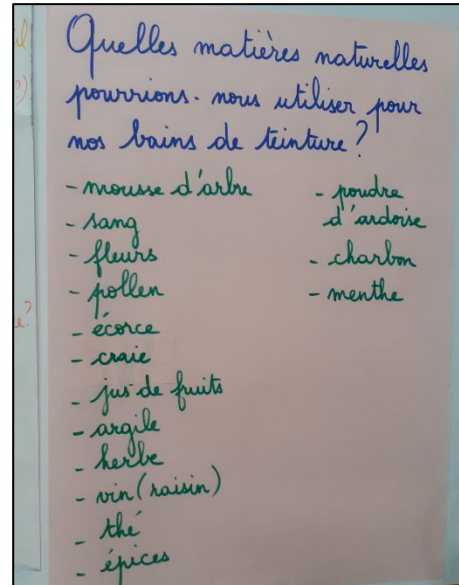 Quelles matières naturelles
pourrions-nous utiliser pour
nos bains de teinture ?
- mousse d'arbre
- sang
- fleurs
- pollen
- écorce
- craie
- jus de fruits
- argile
- herbe
- vin (raisin)
- thé
- épices
- poudre
d'ardoise
- charbon
- menthe